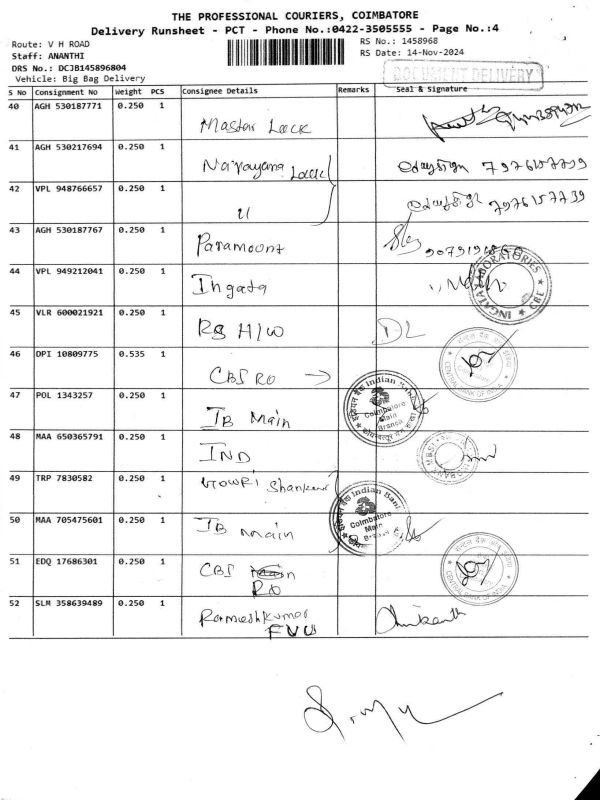 THE PROFESSIONAL COURIERS, COIMBATORE
Delivery Runsheet - PCT - Phone No.:0422-3505555 - Page No.:4
Route: V H ROAD
RS No.: 1458968
Staff: ANANTHI
RS Date: 14-Nov-2024
DRS No.: DCJB145896804
Vehicle: Big Bag Delivery
DOCUMENT DELIVERY
S No Consignment No Weight PCS Consignee Details Remarks Seal & Signature
40 AGH 530187771 0.250 1 Master Lock
41 AGH 530217694 0.250 1 Narayana Lock
42 VPL 948766657 0.250 1 u
43 AGH 530187767 0.250 1 Paramount
44 VPL 949212041 0.250 1 Ingata
INGATA LABORATORIES CBE
45 VLR 600021921 0.250 1 RS H/W DL
46 DPI 10809775 0.535 1 CBI RO →
CENTRAL BANK OF INDIA
47 POL 1343257 0.250 1 IB Main
Indian Bank Coimbatore Main Branch
48 MAA 650365791 0.250 1 IND
49 TRP 7830582 0.250 1 Gowri Shankar
50 MAA 705475601 0.250 1 IB main
Indian Bank Coimbatore Main Branch
51 EDQ 17686301 0.250 1 CBI RO
CENTRAL BANK OF INDIA
52 SLM 358639489 0.250 1 Rameshkumar
FVU